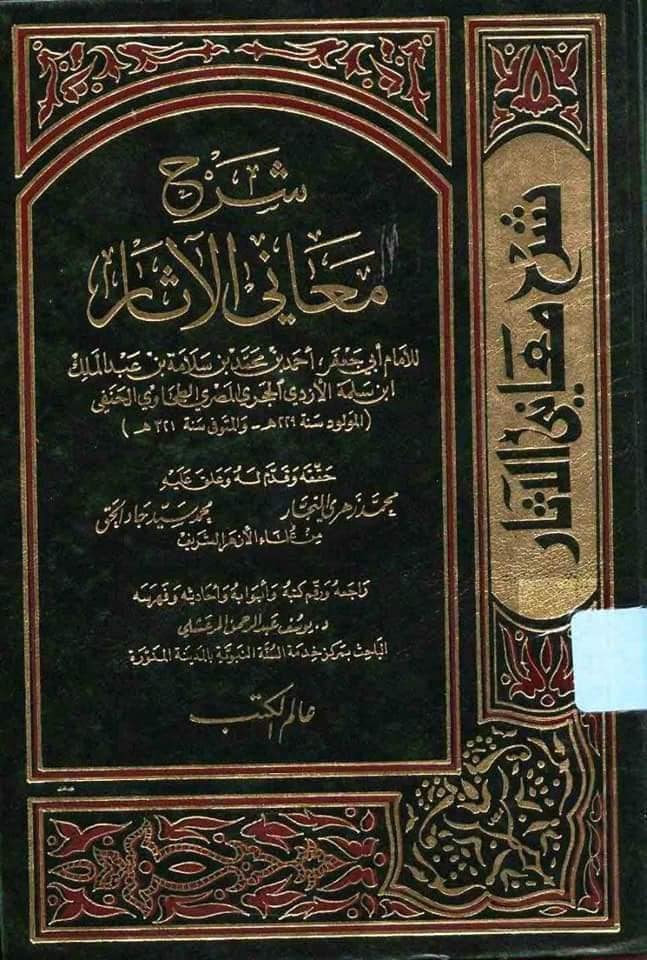 شرح
معاني الآثار
للإمام أبي جعفر، أحمد بن محمد بن سلامة بن عبد الملك
ابن سلمة الأزدي الحجري المصري الطحاوي الحنفي
(المولود سنة ٢٢٩ هـ - والمتوفى سنة ٣٢١ هـ)
حققه وقدم له وعلق عليه
محمد زهري النجار محمد سيد جاد الحق
من علماء الأزهر الشريف
راجعه ورقم كتبه وأبوابه وأحاديثه وفهرسه
د. يوسف عبد الرحمن المرعشلي
الباحث بمركز خدمة السنة النبوية بالمدينة المنورة
عالم الكتب
شرح معاني الآثار